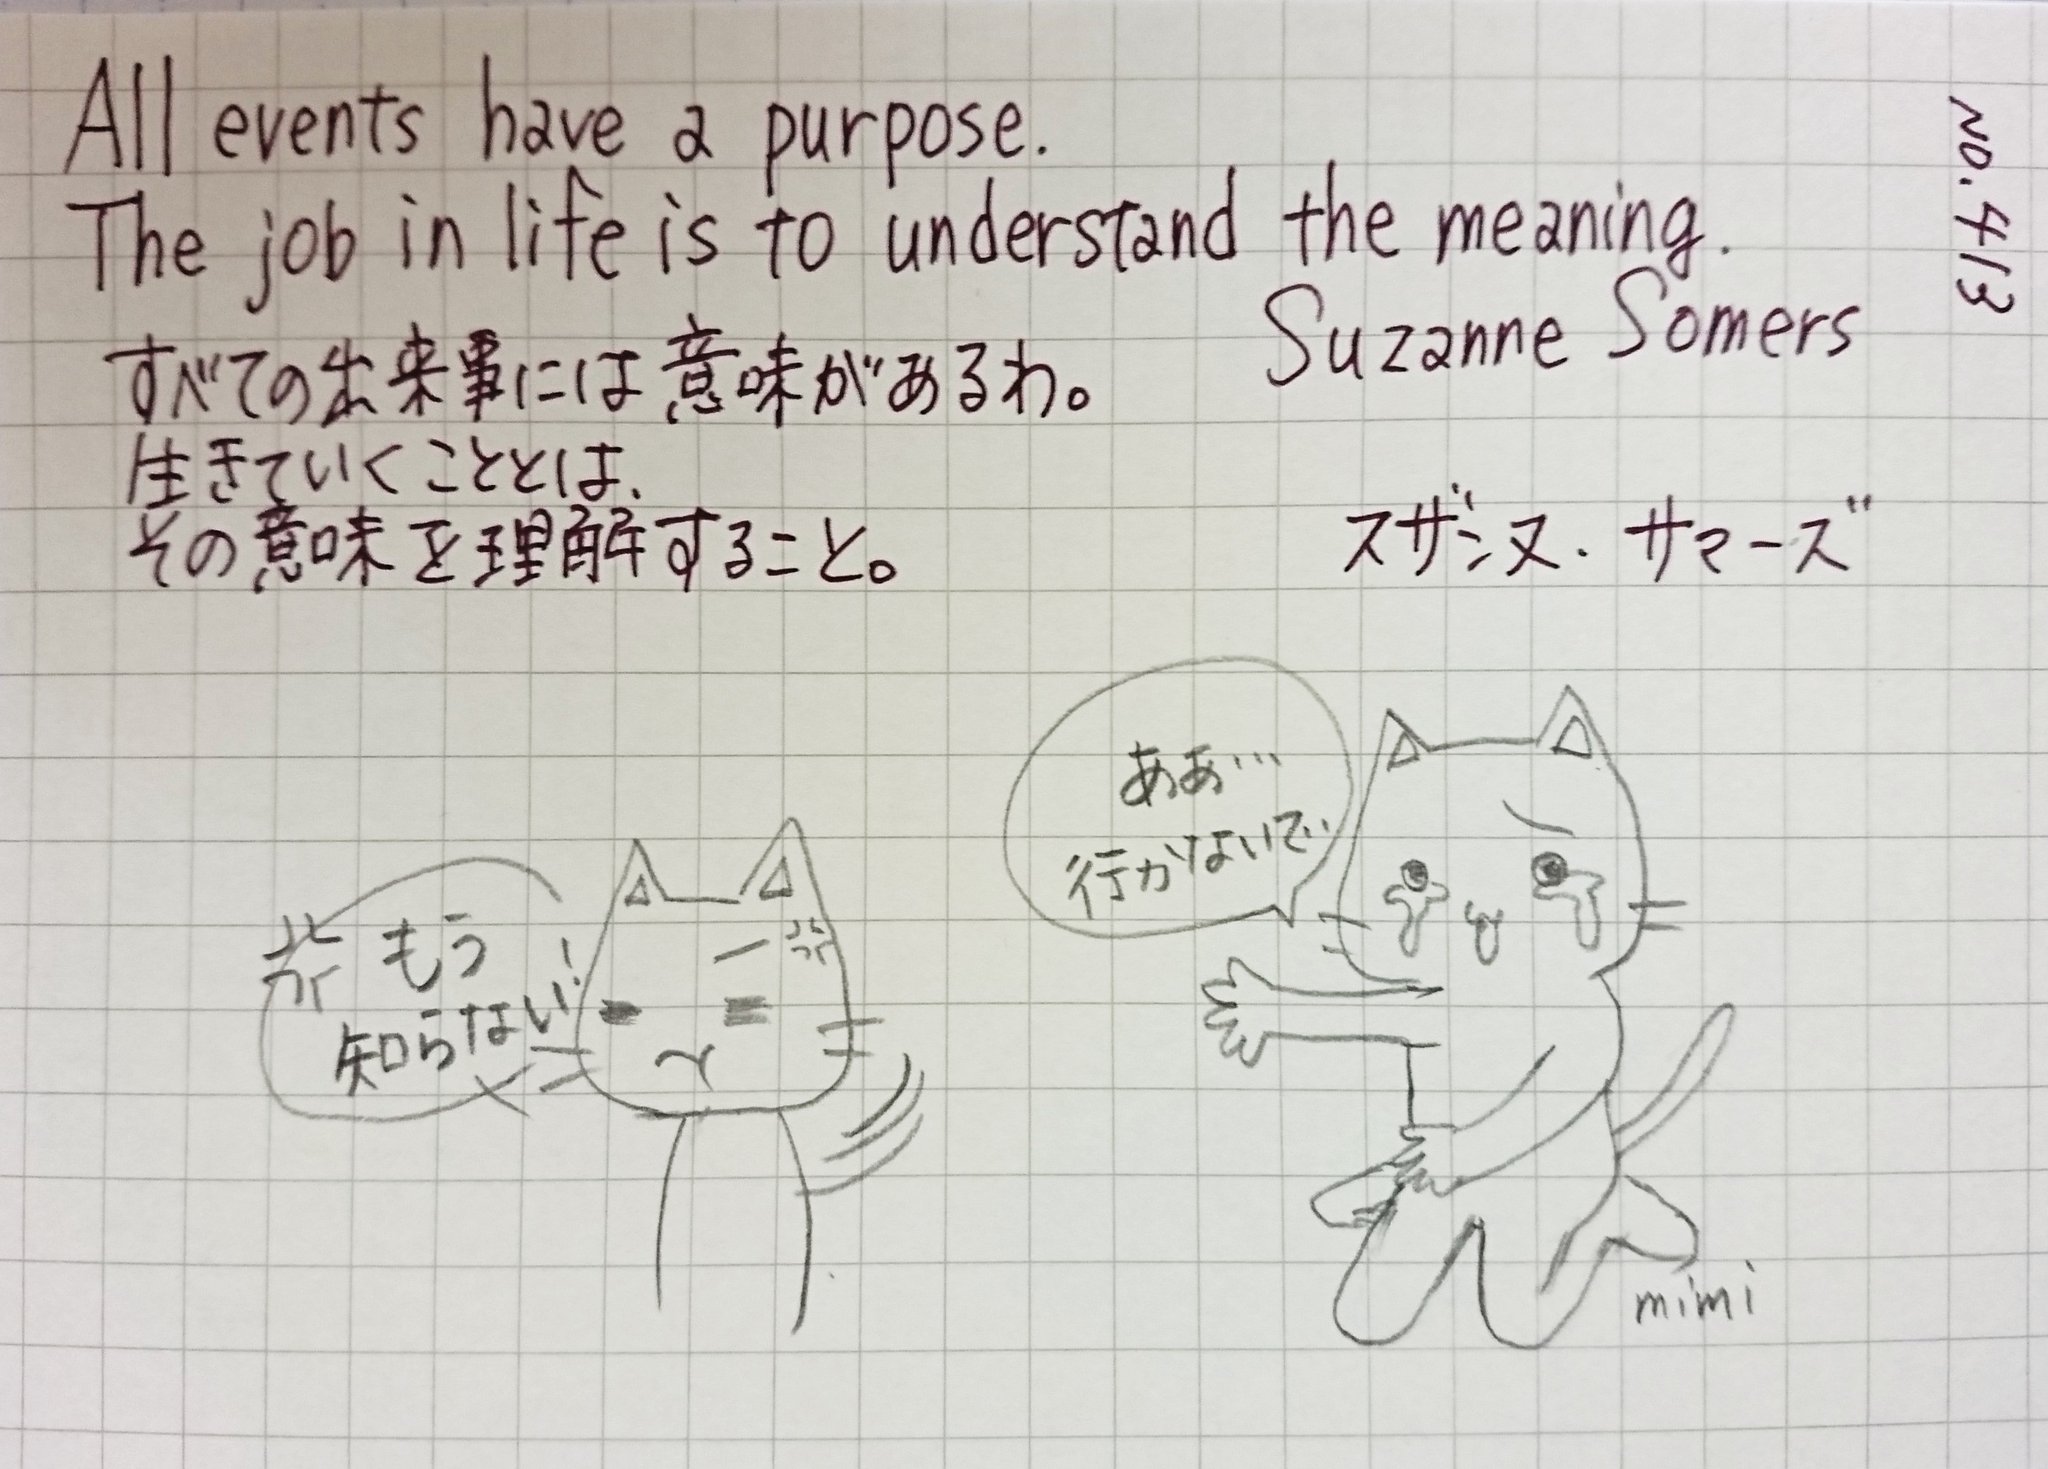 All events have a purpose.
The job in life is to understand the meaning.
Suzanne Somers
no.413
すべての出来事には意味があるわ。
生きていくこととは、
その意味を理解すること。
スザンヌ・サマーズ
もう
知らない!
ああ…
行かないで..
mimi